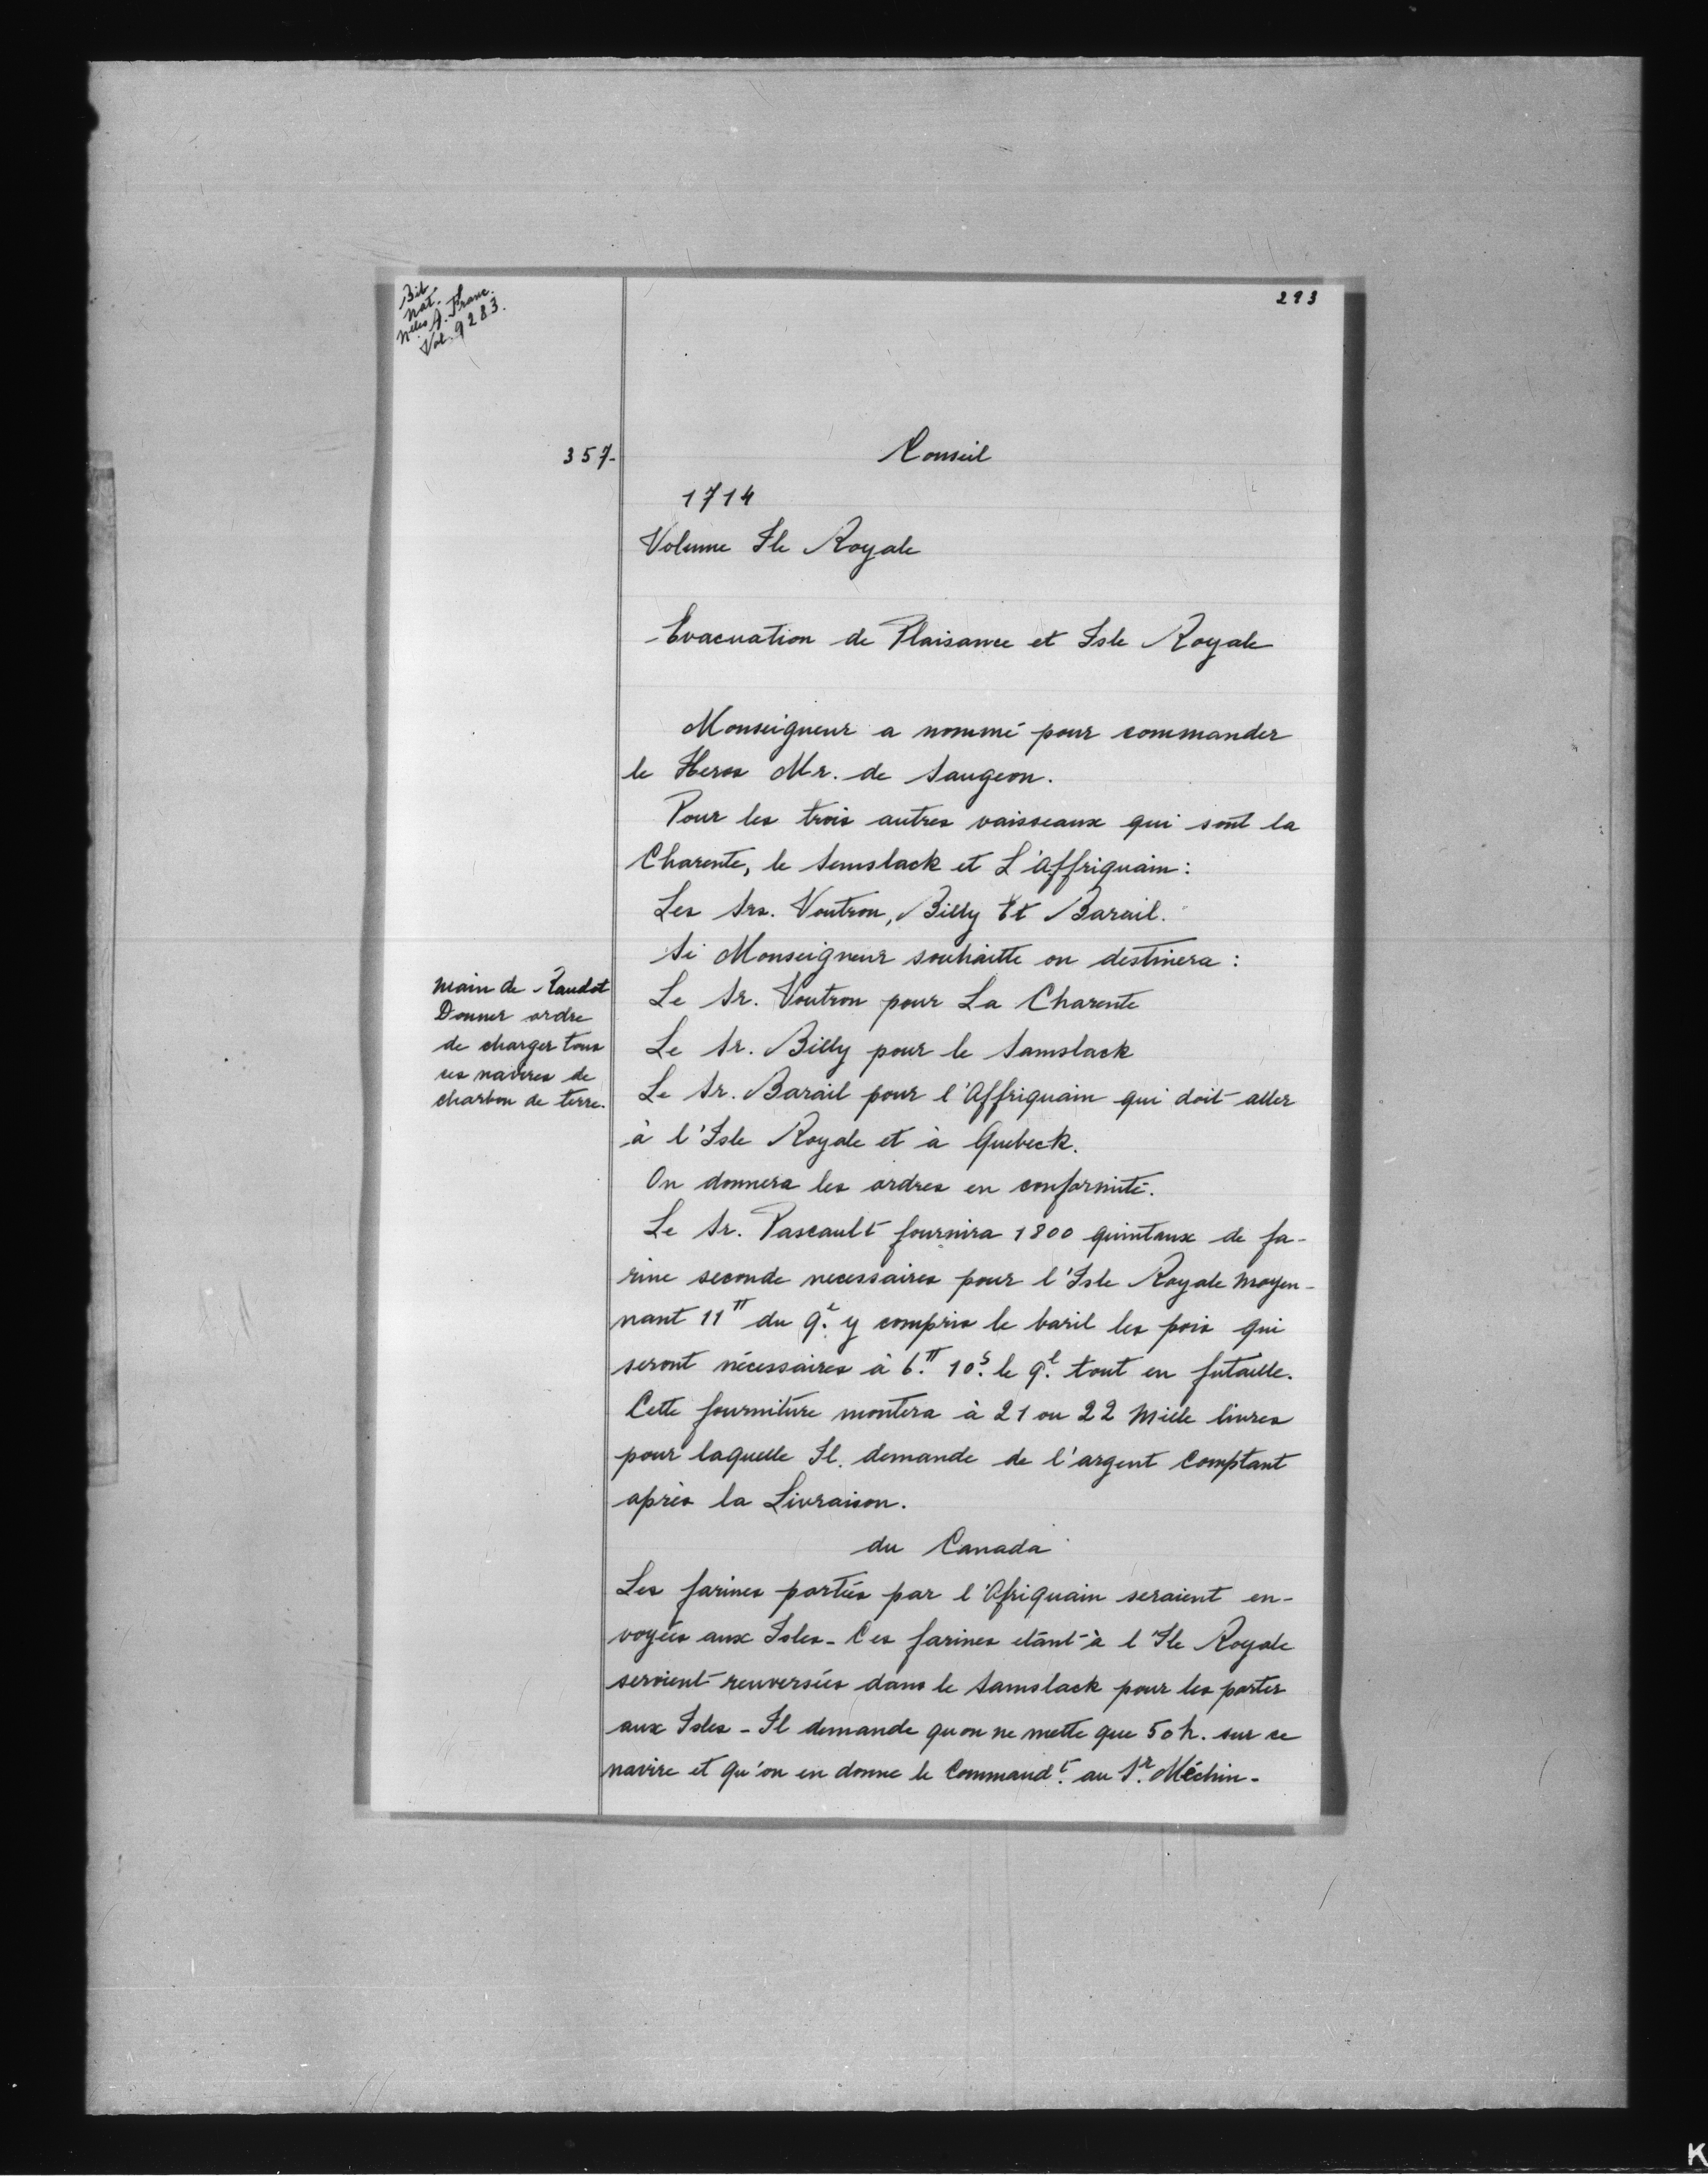 Bib
Nat.
Nlles A. Franc.
Vol. 9283.
293
357-
Conseil
1714
Volume Ile Royale
Evacuation de Plaisance et Isle Royale
Monseigneur a nommé pour commander
le Heros Mr. de Saugeon.
Pour les trois autres vaisseaux qui sont la
Charente, le Semslack et L'Affriquain:
Les Srs. Voutron, Billy Et Barail.
Si Monseigneur souhaitte on destinera :
main de Raudot
Donner ordre
de charger tous
ces navires de
charbon de terre.
Le Sr. Voutron pour La Charente
Le Sr. Billy pour le Samslack
Le Sr. Barail pour l'Affriquain qui doit aller
à l'Isle Royale et à Quebeck.
On donnera les ordres en conformité.
Le Sr. Pascault fournira 1800 quintaux de fa-
rine seconde necessaires pour l'Isle Royale moyen-
nant 11tt du q.l y compris le baril les pois qui
seront nécessaires à 6.tt 10.s le q.l tout en futaille.
Cette fourniture montera à 21 ou 22 Mille livres
pour laquelle Il. demande de l'argent Comptant
après la Livraison.
du Canada
Les farines portées par l'Afriquain seraient en-
voyées aux Isles - Ces farines etant à l'Ile Royale
seroient renversées dans le Samslack pour les porter
aux Isles - Il demande qu on ne mette que 50 h. sur ce
navire et qu'on en donne le Command.t au S.r Méchin -
K